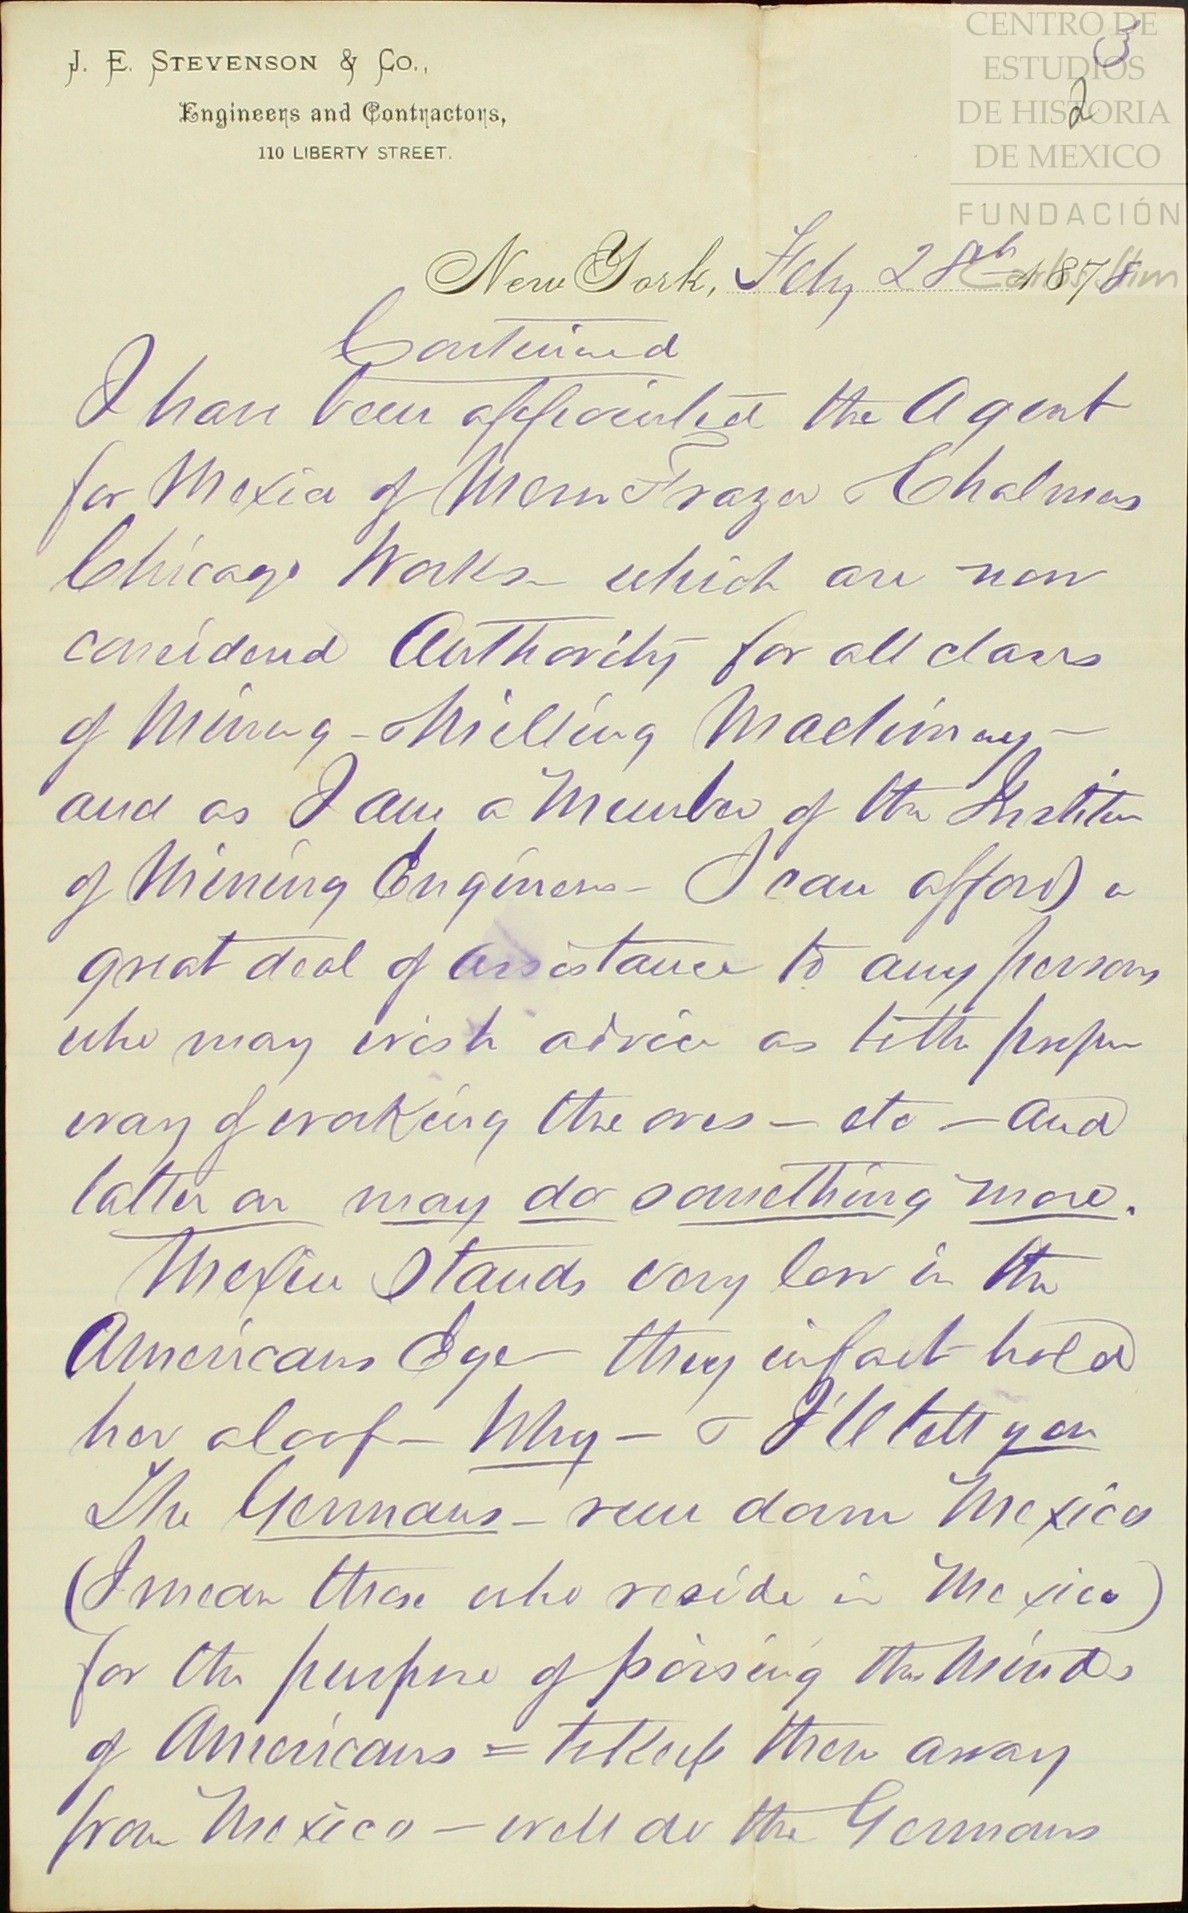 J. E. STEVENSON & CO.,
Engineers and Contractors,
110 LIBERTY STREET.
CENTRO DE
ESTUDIOS
DE HISTORIA
DE MEXICO
FUNDACIÓN
Carlos Slim
3
2
New York, Feby 28th 1878
Continued
I have been appointed the Agent
for Mexico of Messrs Frazer & Chalmers
Chicago Works – which are now
considered Authority for all class
of Mining & Milling Machinery –
and as I am a Member of the Institute
of Mining Engineers – I can afford a
great deal of assistance to any persons
who may wish advice as to the proper
way of working the ores – etc – and
latter on may do something more.
Mexico Stands very low in the
Americans Eye – they infact hold
her aloof – Why – & I'll tell you
The Germans – run down Mexico
(I mean those who reside in Mexico)
for the purpose of poising the Minds
of Americans = to keep them away
from Mexico – well do the Germans